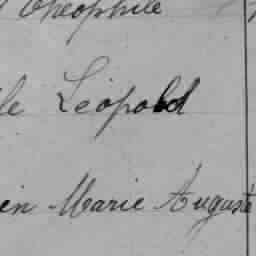 Théophile
Léopold
Marie Auguste